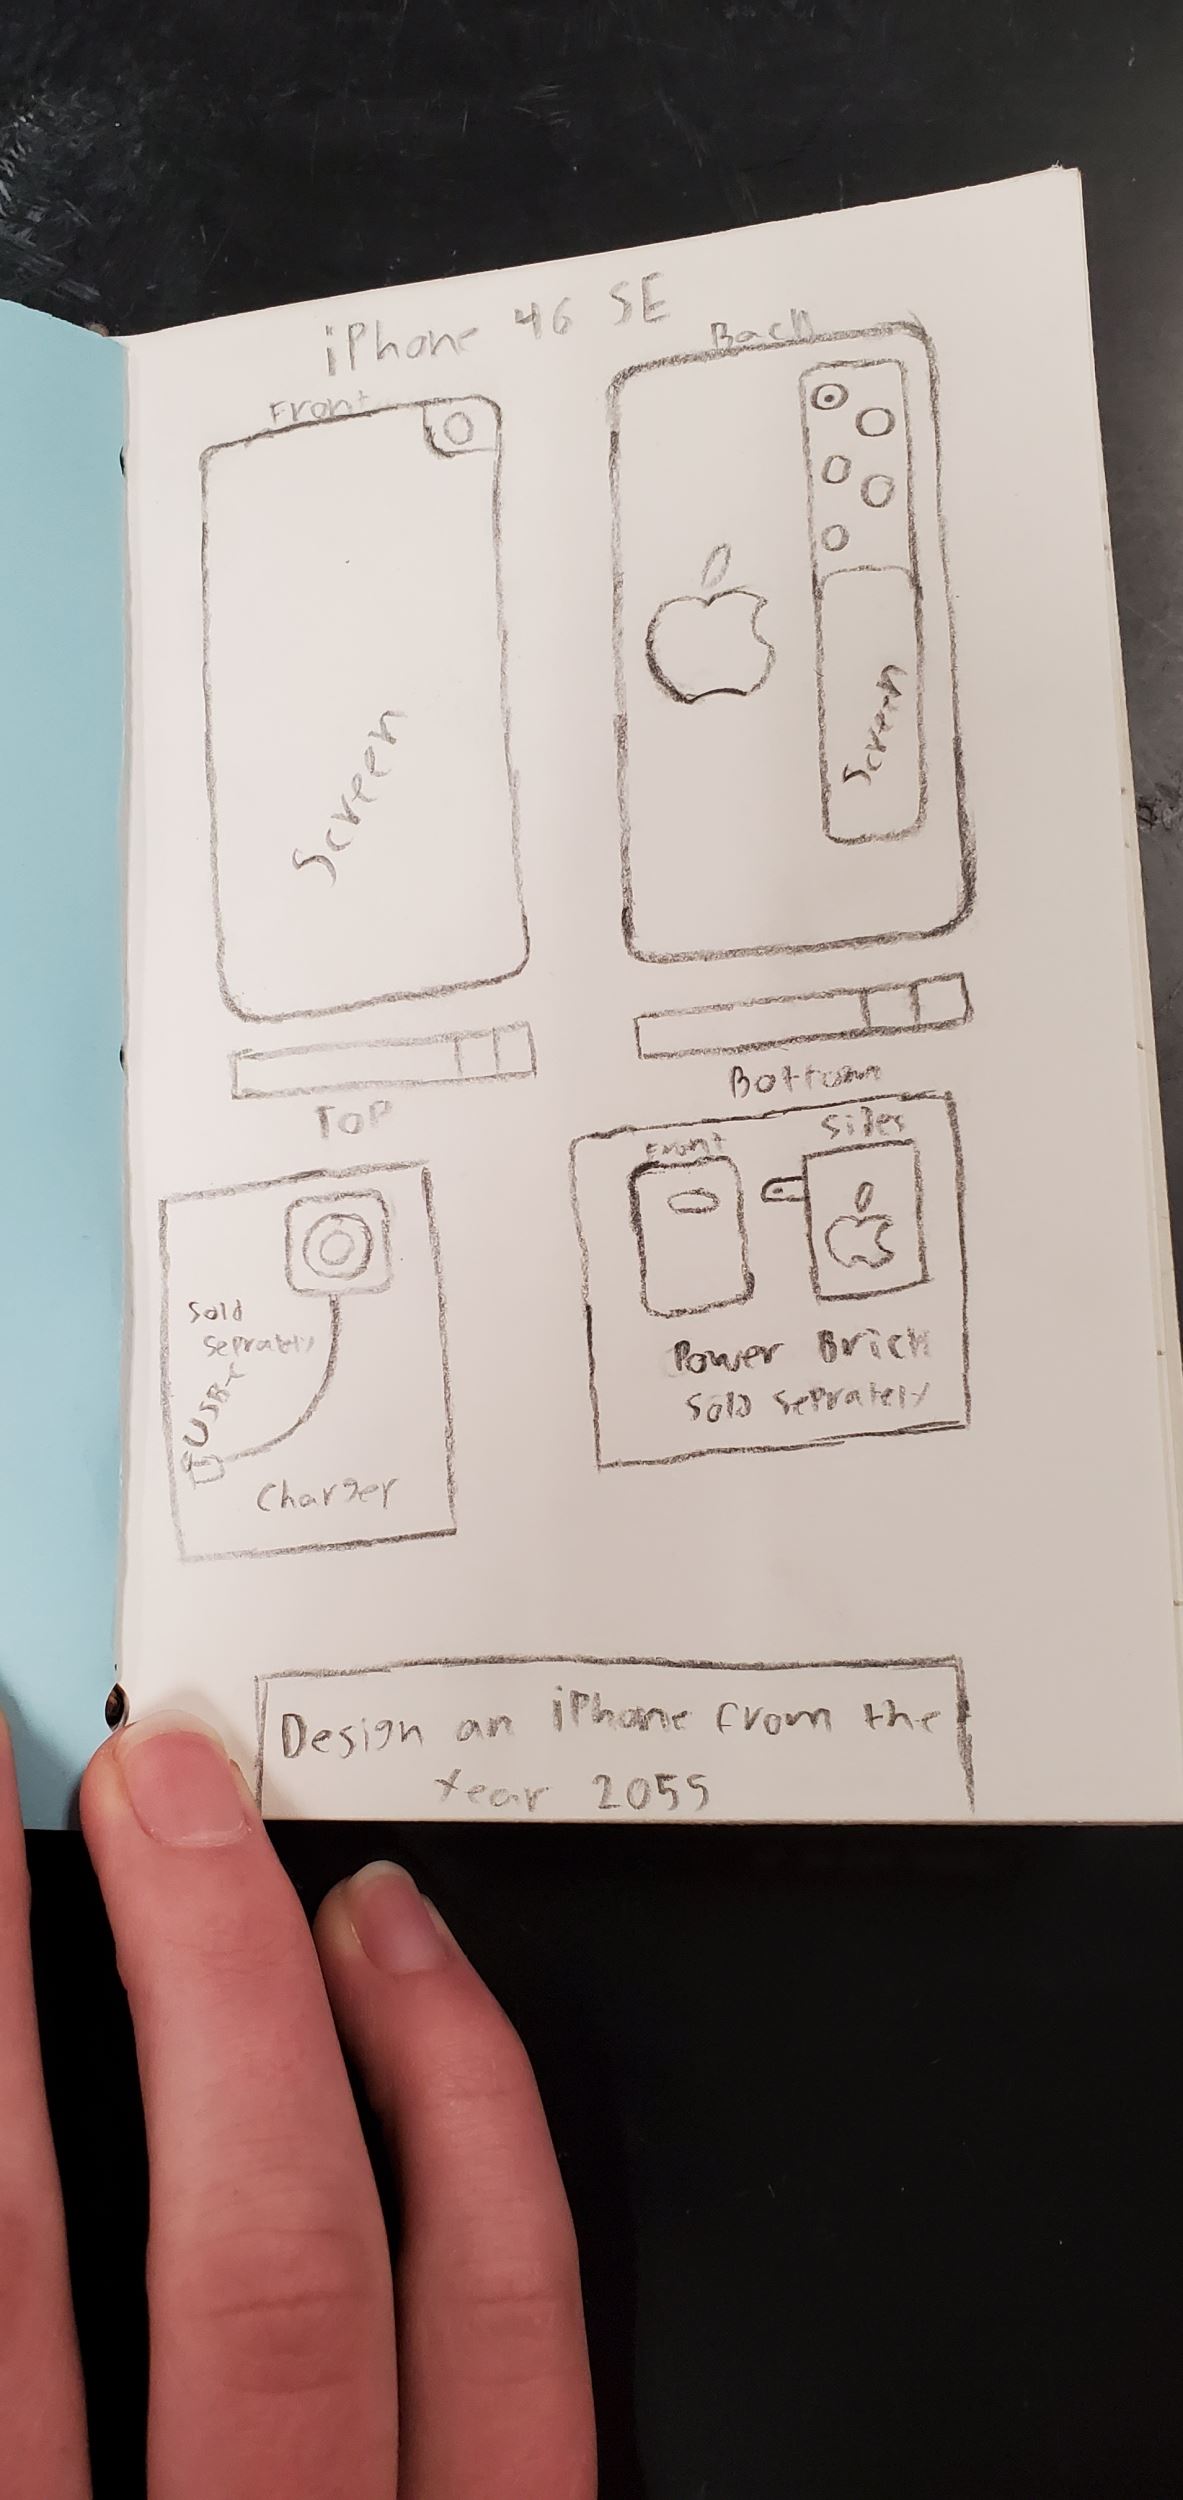 iPhone 46 SE
Front
Back
Screen
Screen
Top
Bottom
Sold
Seprately
USB-C
Charger
Front
Sides
Power Brick
Sold Seprately
Design an iPhone from the
Year 2055